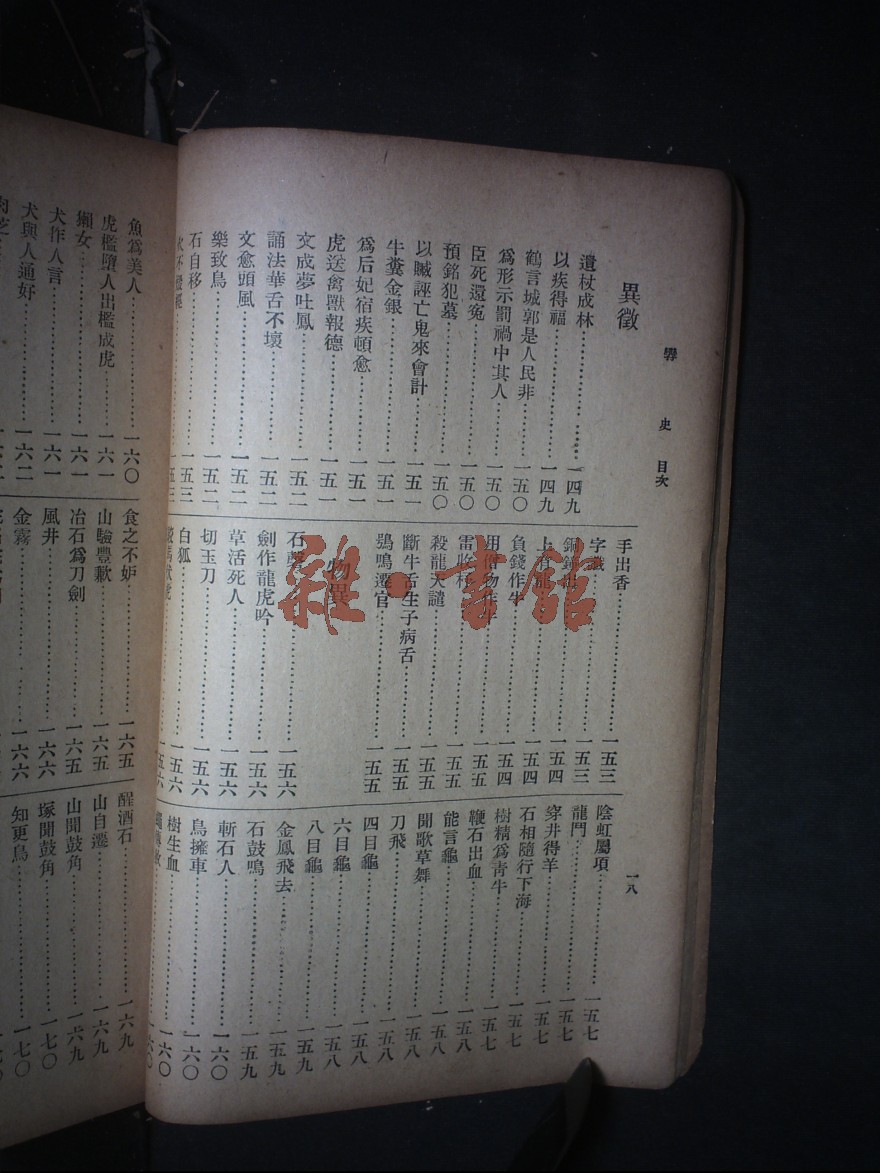 釋史 目次
一八
異徵
遺杖成林⋯⋯一四九
以疾得福⋯⋯一四九
鶴言城郭是人民非⋯⋯一五〇
爲形示罰禍中其人⋯⋯一五〇
臣死還寃⋯⋯一五〇
預銘犯墓⋯⋯一五〇
以贓誣亡鬼來會計⋯⋯一五一
牛糞金銀⋯⋯一五一
爲后妃宿疾頓愈⋯⋯一五一
虎送禽獸報德⋯⋯一五一
文成夢吐鳳⋯⋯一五二
誦法華舌不壞⋯⋯一五二
文愈頭風⋯⋯一五二
樂致鳥⋯⋯一五二
石自移⋯⋯一五三
手出香⋯⋯一五三
字⋯⋯一五三
一五四
負錢作牛⋯⋯一五四
一五五
殺龍天譴⋯⋯一五五
斷牛舌生子病舌⋯⋯一五五
鵶鳴遷官⋯⋯一五五
物異
石⋯⋯一五六
劍作龍虎吟⋯⋯一五六
草活死人⋯⋯一五六
切玉刀⋯⋯一五六
白狐⋯⋯一五六
陰虹屬項⋯⋯一五七
龍門⋯⋯一五七
穿井得羊⋯⋯一五七
石相隨行下海⋯⋯一五七
樹精爲靑牛⋯⋯一五七
鞭石出血⋯⋯一五八
能言龜⋯⋯一五八
聞歌草舞⋯⋯一五八
刀飛⋯⋯一五八
四目龜⋯⋯一五八
六目龜⋯⋯一五八
八目龜⋯⋯一五九
金鳳飛去⋯⋯一五九
石鼓鳴⋯⋯一五九
斬石人⋯⋯一六〇
鳥擁車⋯⋯一六〇
樹生血⋯⋯一六〇
魚爲美人⋯⋯一六〇
虎檻墮人出檻成虎⋯⋯一六一
獺女⋯⋯一六一
犬作人言⋯⋯一六一
犬與人通好⋯⋯一六二
食之不妒⋯⋯一六五
山驗豐歉⋯⋯一六五
冶石爲刀劍⋯⋯一六五
風井⋯⋯一六六
金霧⋯⋯一六六
醒酒石⋯⋯一六九
山自遷⋯⋯一六九
山聞鼓角⋯⋯一六九
塚聞鼓角⋯⋯一七〇
知更鳥⋯⋯一七〇
雜·書館